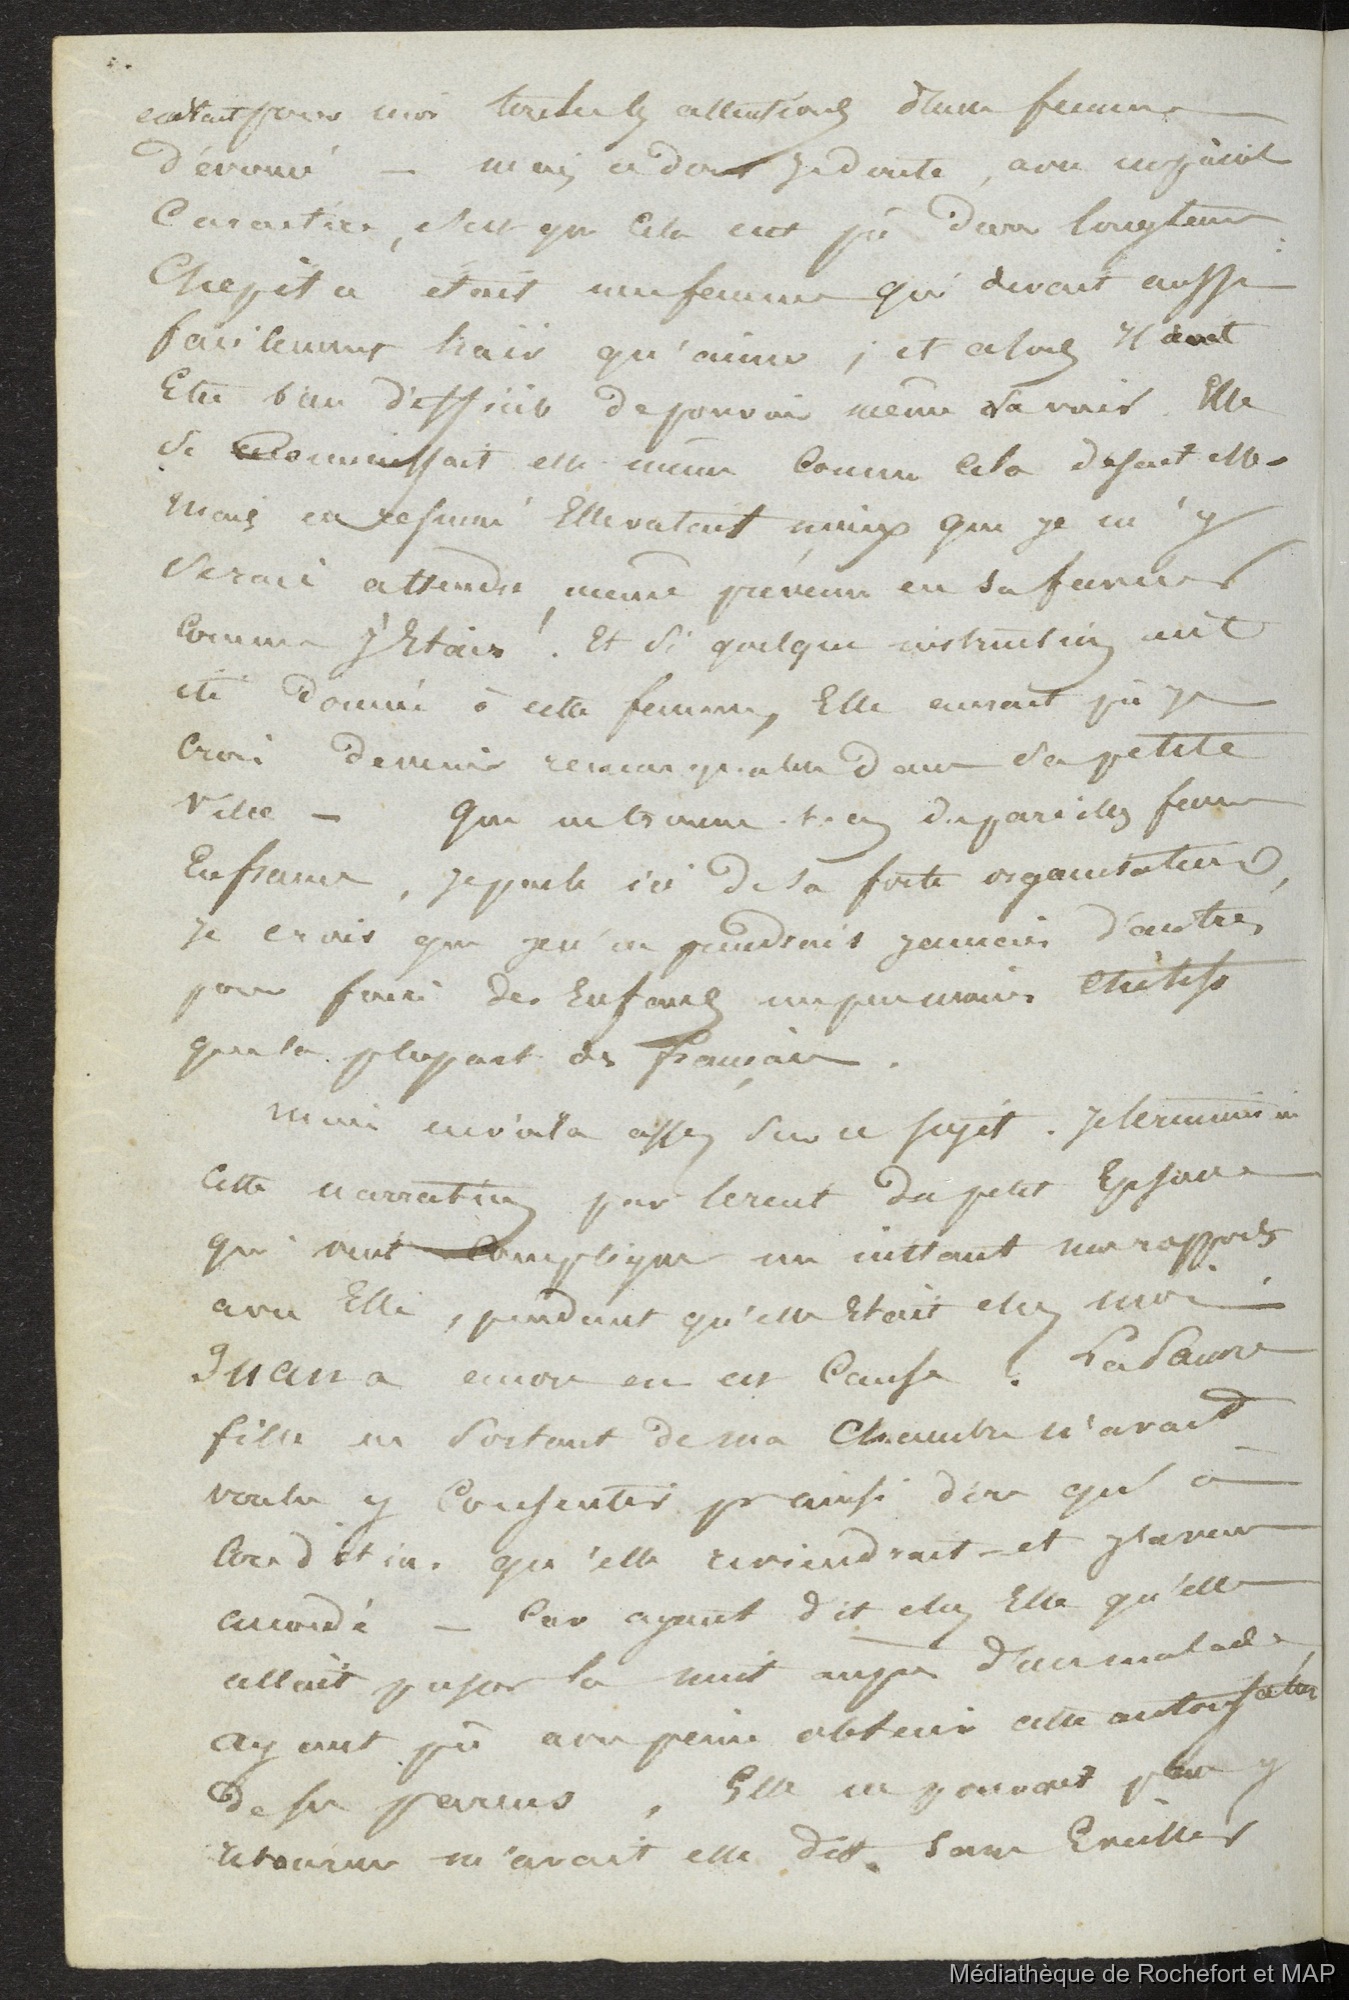 eutait pour moi toutes les attentions d'une femme
dévoué — mais ce dont je doute, avec un pareil
Caractère, c'est que cela eut pû durer longtems
Chepita était une femme qui devait aussi
facilement haïr qu'aimer ; et alors Il devait
Etre bien difficile de pouvoir même la voir. Elle
se connaissait elle même comme cela disait elle.
Mais en résumé Elle valait mieux que je ne m'y
serais attendu, même prévenu en sa faveur
comme J'Etais ! Et si quelque instruction eut
été donné à cette femme, Elle aurait pû je
crois devenir remarquable dans sa petite
ville — Que ne trouve-t-on de pareilles femmes
En france, je parle ici de sa forte organisation,
Je crois que je n'en prendrais jamais d'autres
pour faire des Enfans un peu moins chétifs
que la plupart des français.
Mais en voila assez sur ce sujet. Je terminerai
cette narration par le récit du petit Episode
qui vint compliquer un instant nos rapports
avec Elle, pendant qu'elle Etait chez moi
Juana encore en est Cause. La Pauvre
fille en sortant de ma Chambre n'avait
voulu y consentir pr ainsi dire qu'à
Condition qu'elle reviendrait — et je l'avais
accordé — Car ayant dit chez Elle qu'elle
allait passer la nuit auprès d'un malade,
ayant pû avec peine obtenir cette autorisation
de ses parens, Elle ne pouvait plus y
retourner m'avait elle dit. Sans Eveiller
Médiathèque de Rochefort et MAP